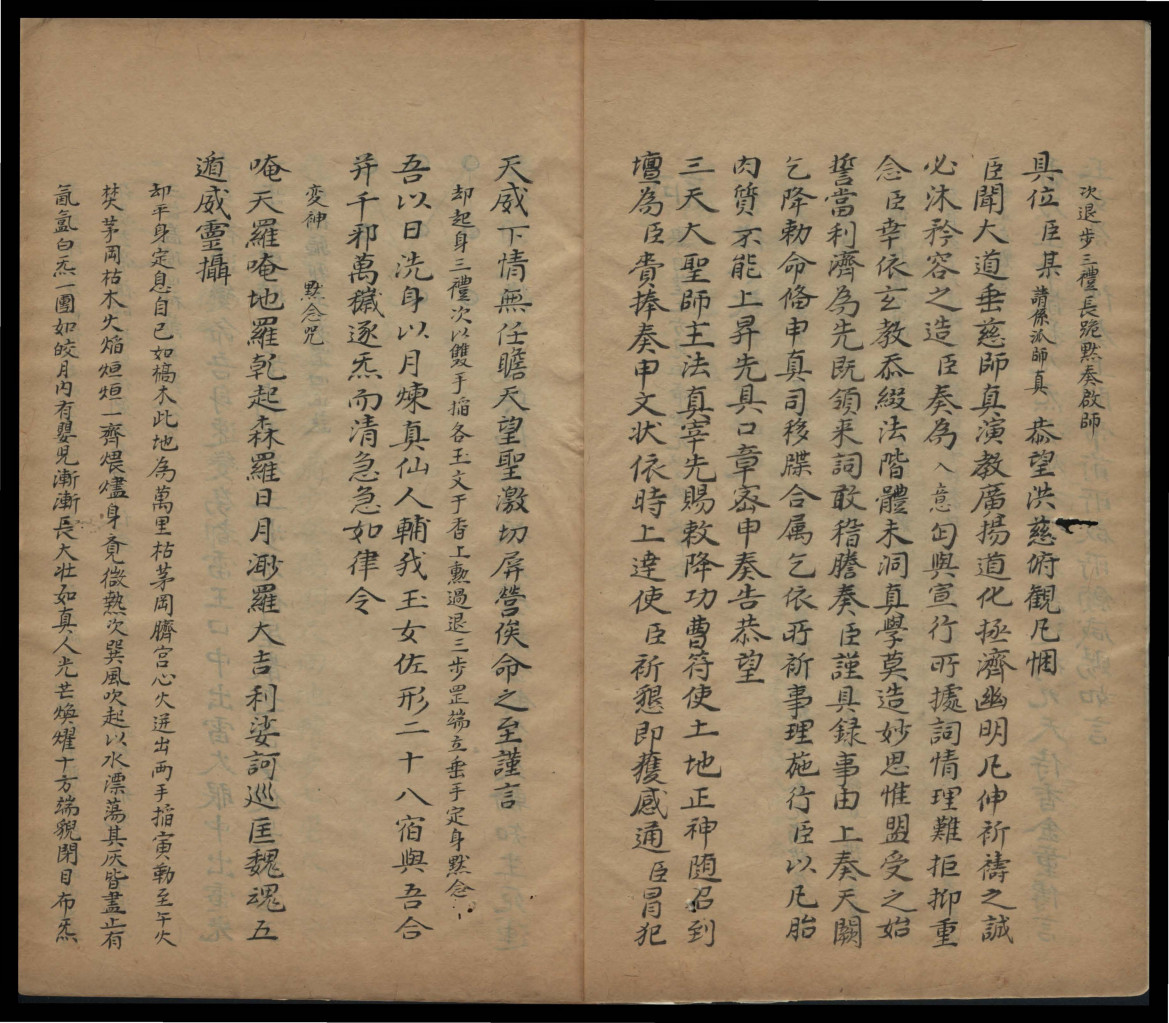 次退步三禮長跪黙奏啟師
具位　臣某　請係派師真　恭望洪慈俯觀凡悃
臣聞大道垂慈師真演教廣揚道化拯濟幽明凡伸祈禱之誠
必沐矜容之造臣奏為　入意　匃與宣行所據詞情理難拒抑重
念臣幸依玄教忝綴法階體未洞真學莫造妙思惟盟受之始
誓當利濟為先既領来詞敢稽謄奏臣謹具録事由上奏天闕
乞降勅命俻申真司移牒合属乞依所祈事理施行臣以凡胎
肉質不能上昇先具口章密申奏告恭望
三天大聖師主法真宰先賜敕降功曹符使土地正神随召到
壇為臣賫捧奏申文状依時上達使臣祈懇即獲感通臣冒犯
天威下情無任瞻天望聖激切屏營俟命之至謹言
却起身三禮次以雙手搯各玉文于香上勲過退三歩罡端立垂手定身黙念
吾以日洗身以月煉真仙人輔我玉女佐形二十八宿與吾合
并千邪萬穢逐炁而清急急如律令
変神　黙念咒
唵天羅唵地羅乾起森羅日月渺羅大吉利娑訶巡匡魏魂五
遁威靈攝
却平身定息自已如槁木此地為萬里枯茅岡臍宫心火迸出両手搯寅勒至午火
焚茅岡枯木火焰烜烜一齊煨燼身竟微熱次巽風吹起以水漂蕩其灰皆盡止有
氤氲白炁一團如皎月内有嬰児漸漸長大壮如真人光芒煥耀十方端貌閉目布炁